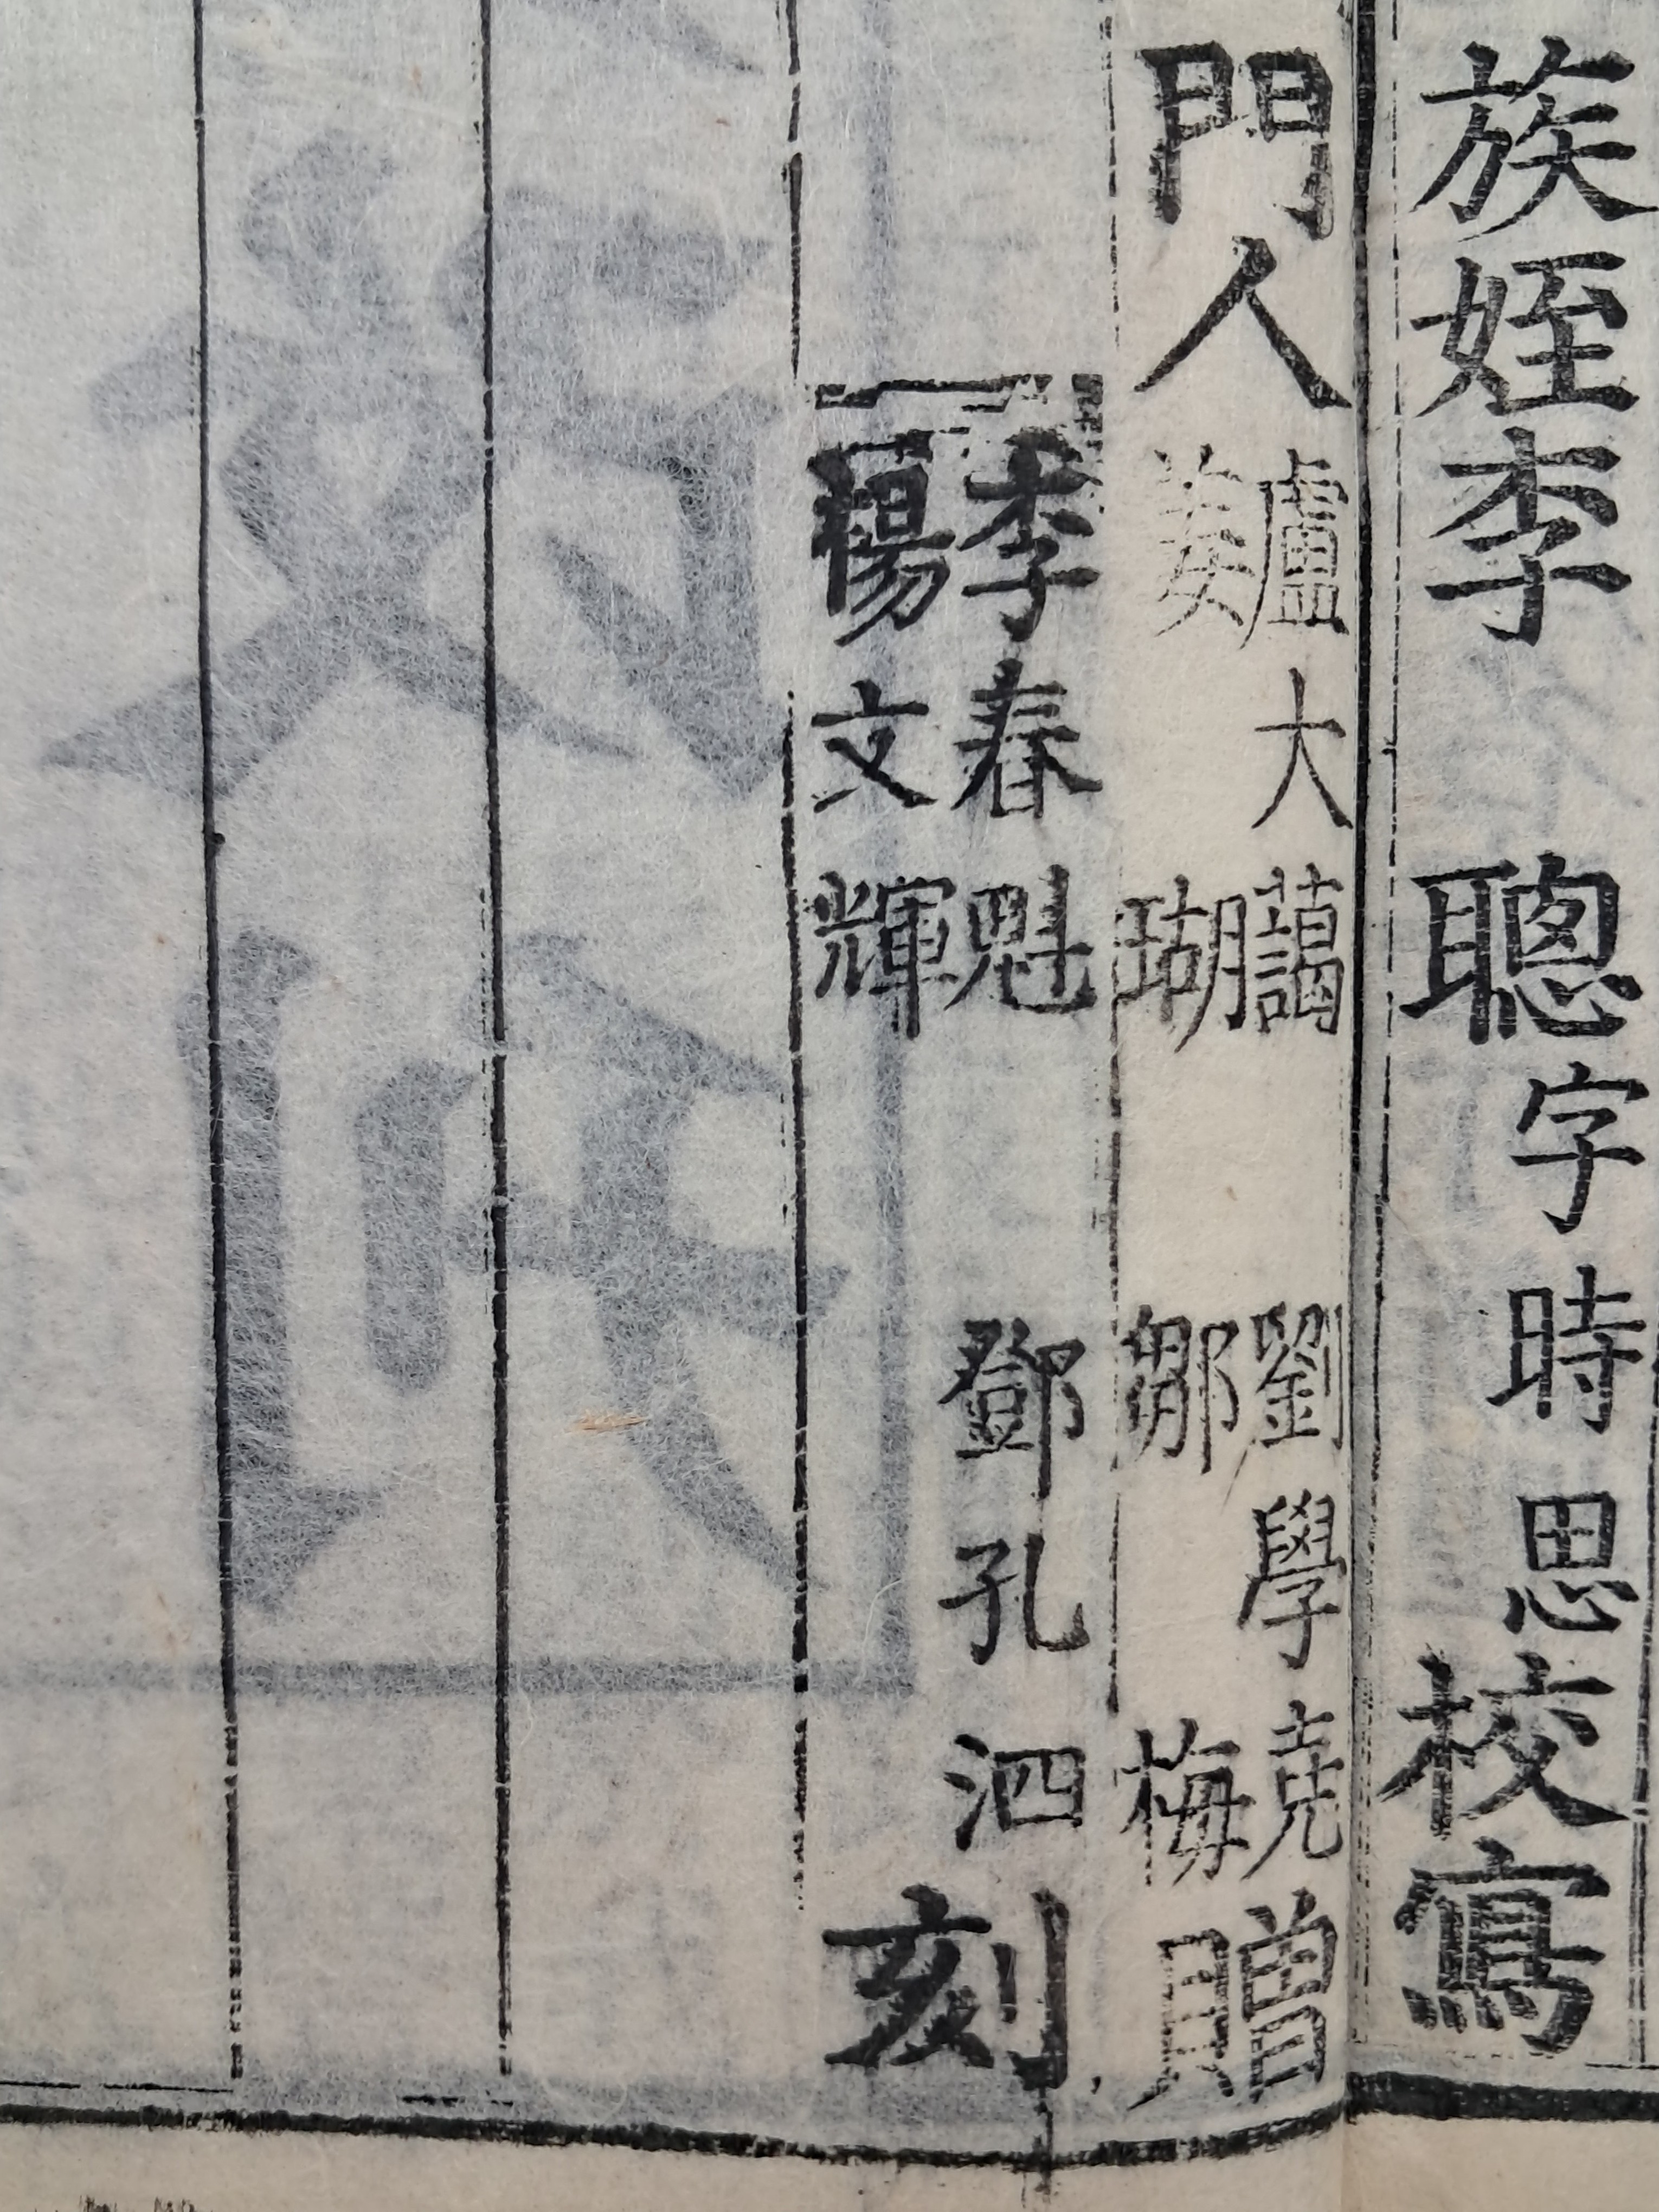 族姪李 聰字時思校寫
門人
盧大藹 劉學堯
姜 瑚 鄒 梅
贈
李春魁 鄧孔泗
楊文輝
刻